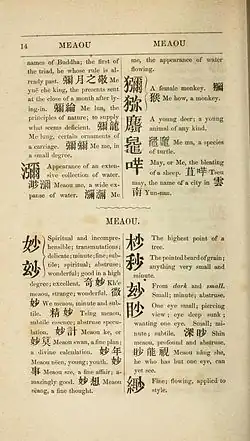 14
MEAOU
MEAOU
names of Buddha; the first of
the triad, he whose rule is al-
ready past. 彌月之敬 Me
yuĕ che king, the presents sent
at the close of a month after ly-
ing-in. 彌綸 Me lun, the
principles of nature; to supply
what seems deficient. 彌龍
Me lung, certain ornaments of
a carriage. 彌彌 Me me, in
a small degree.
瀰 Appearance of an exten-
sive collection of water.
渺瀰 Meaou me, a wide ex-
panse of water. 瀰瀰 Me
me, the appearance of water
flowing.
獼 A female monkey. 獼
猴 Me how, a monkey.
麛 A young deer; a young
animal of any kind.
A species of
turtle.
咩 May, or Me, the bleating
of a sheep. 苴咩 Tseu
may, the name of a city in 雲
南 Yun-nan.
MEAOU.
妙 Spiritual and incompre-
hensible; transmutations;
delicate; minute; fine; sub-
tile; spiritual; abstruse;
wonderful; good in a high
degree; excellent. 奇妙 K'he
meaou, strange; wonderful. 微
妙 We meaou, minute and sub-
tile. 精妙 Tsing meaou,
subtile essence; abstruse specu-
lation. 妙計 Meaou ke, or
妙算 Meaou swan, a fine plan;
a divine calculation. 妙年
Meaou nëen, young; youth. 妙
事 Meaou sze, a fine affair; a-
mazingly good. 妙想 Meaou
sëang, a fine thought.
杪 The highest point of a
tree.
秒 The pointed beard of grain;
any thing very small and
minute.
From dark and small.
Small; minute; abstruse.
眇 One eye small; piercing
view; eye deep sunk;
wanting one eye. Small; mi-
nute; subtile. 深眇 Shin
meaou, profound and abstruse.
眇能視 Meaou năng she,
he who has but one eye, can
yet see.
緲 Fine; flowing, applied to
style.